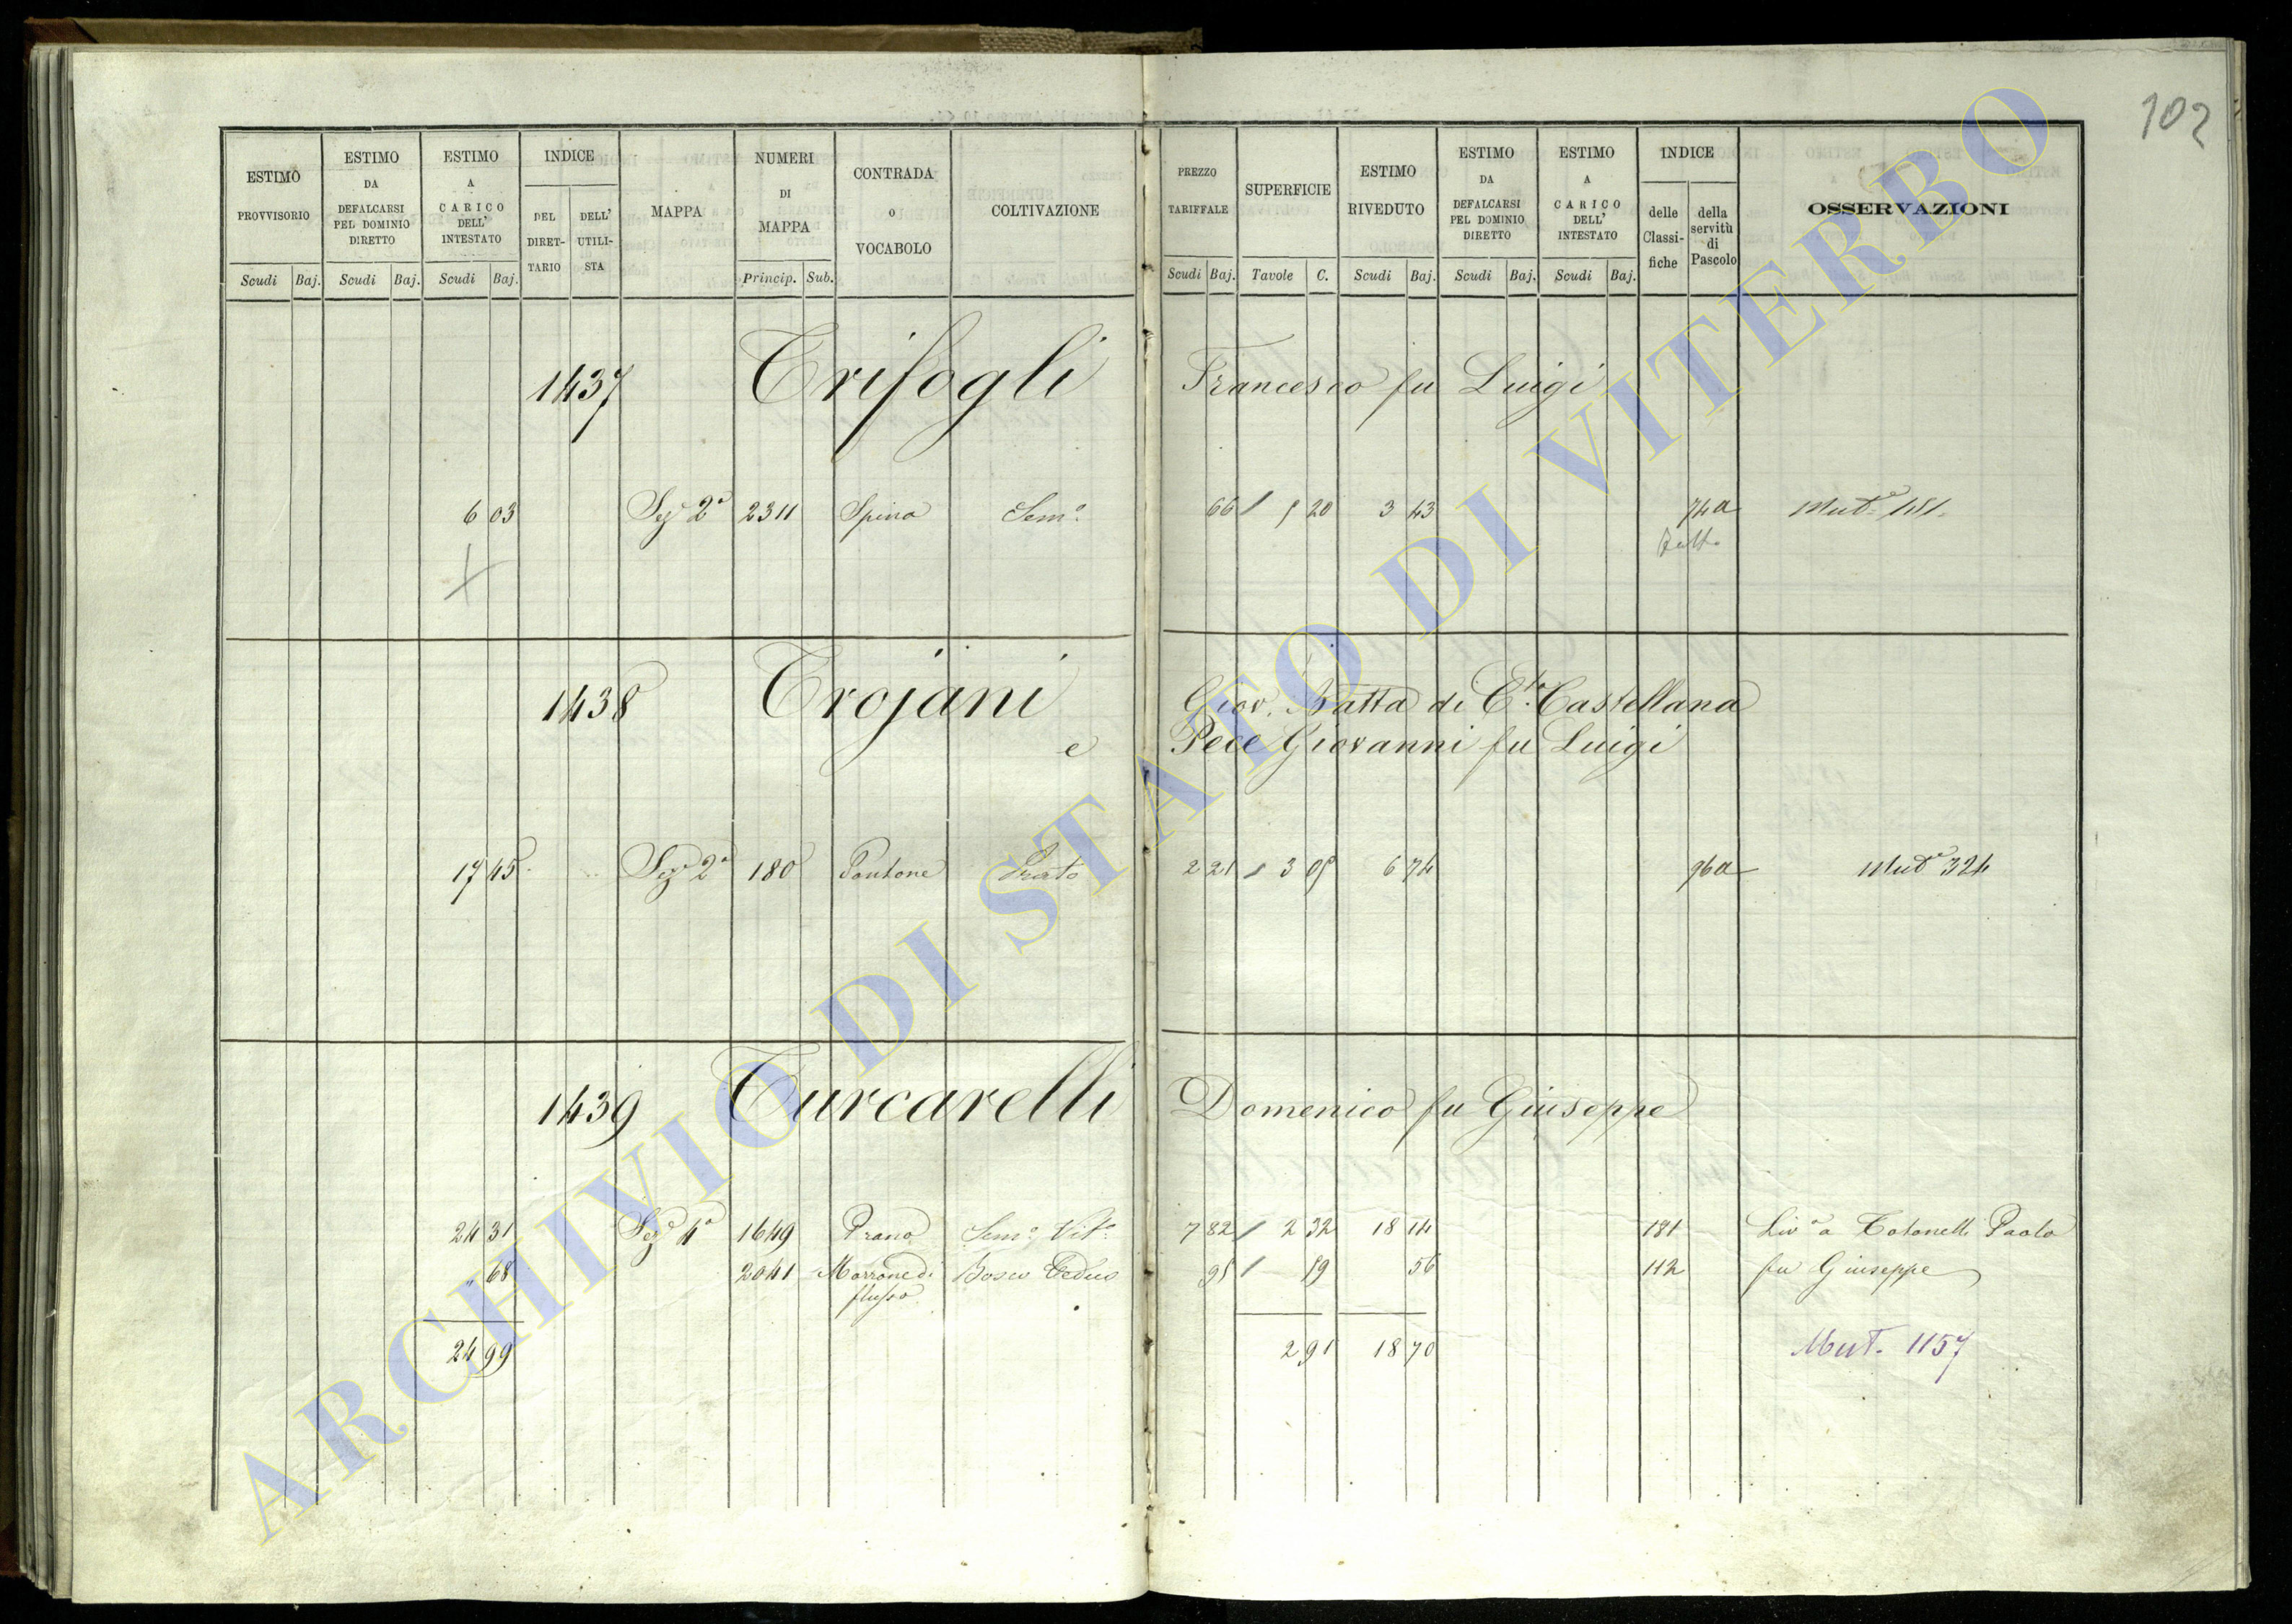 102
ESTIMO PROVVISORIO Scudi Baj.
ESTIMO DA DEFALCARSI PEL DOMINIO DIRETTO Scudi Baj.
ESTIMO A CARICO DELL' INTESTATO Scudi Baj.
INDICE DEL DIRET-TARIO DELL' UTILI-STA
MAPPA
NUMERI DI MAPPA Princip. Sub.
CONTRADA O VOCABOLO
COLTIVAZIONE
PREZZO TARIFFALE Scudi Baj.
SUPERFICIE Tavole C.
ESTIMO RIVEDUTO Scudi Baj.
ESTIMO DA DEFALCARSI PEL DOMINIO DIRETTO Scudi Baj.
ESTIMO A CARICO DELL' INTESTATO Scudi Baj.
INDICE delle Classi-fiche della servitù di Pascolo
OSSERVAZIONI
1437 Trifogli Francesco fu Luigi
6 03 Sez 2a 2311 Spina Semo 66 5 20 3 43 74a Mute 151
1438 Trojani Giov. Batta di Cta Castellana
e Pece Giovanni fu Luigi
17 45 Seze 2a 180 Pantane Prato 2 21 3 05 6 74 96a Mute 324
1439 Turcarelli Domenico fu Giuseppe
24 31 Seze 4a 1649 Prano Semo Vito 7 82 2 32 18 14 181 Livo a Totonelli Paolo
" 68 2041 Marrone di Bosco Ceduo 95 59 56 112 fu Giuseppe
24 99 2 91 18 70 Mut. 1157
ARCHIVIO DI STATO DI VITERBO